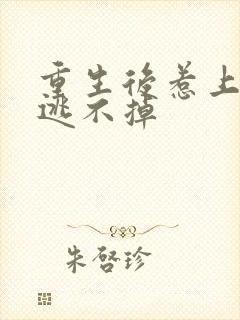 重生後惹上
逃不掉
朱啓珍